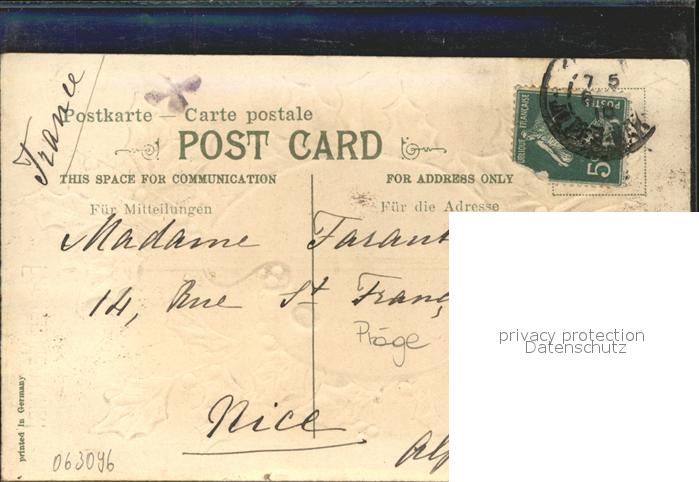 France
Postkarte — Carte postale
POST CARD
THIS SPACE FOR COMMUNICATION
FOR ADDRESS ONLY
Für Mitteilungen
Für die Adresse
POSTES
UBLIQUE FRANÇAISE
5
7 5
Madame Farant
14, Rue St Franç
Präge
Nice
Alp
printed in Germany
063096
privacy protection
Datenschutz